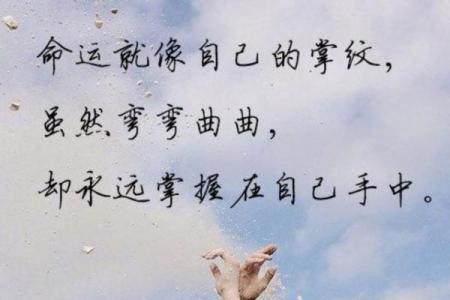 命运就像自己的掌纹，
虽然弯弯曲曲，
却永远掌握在自己手中。